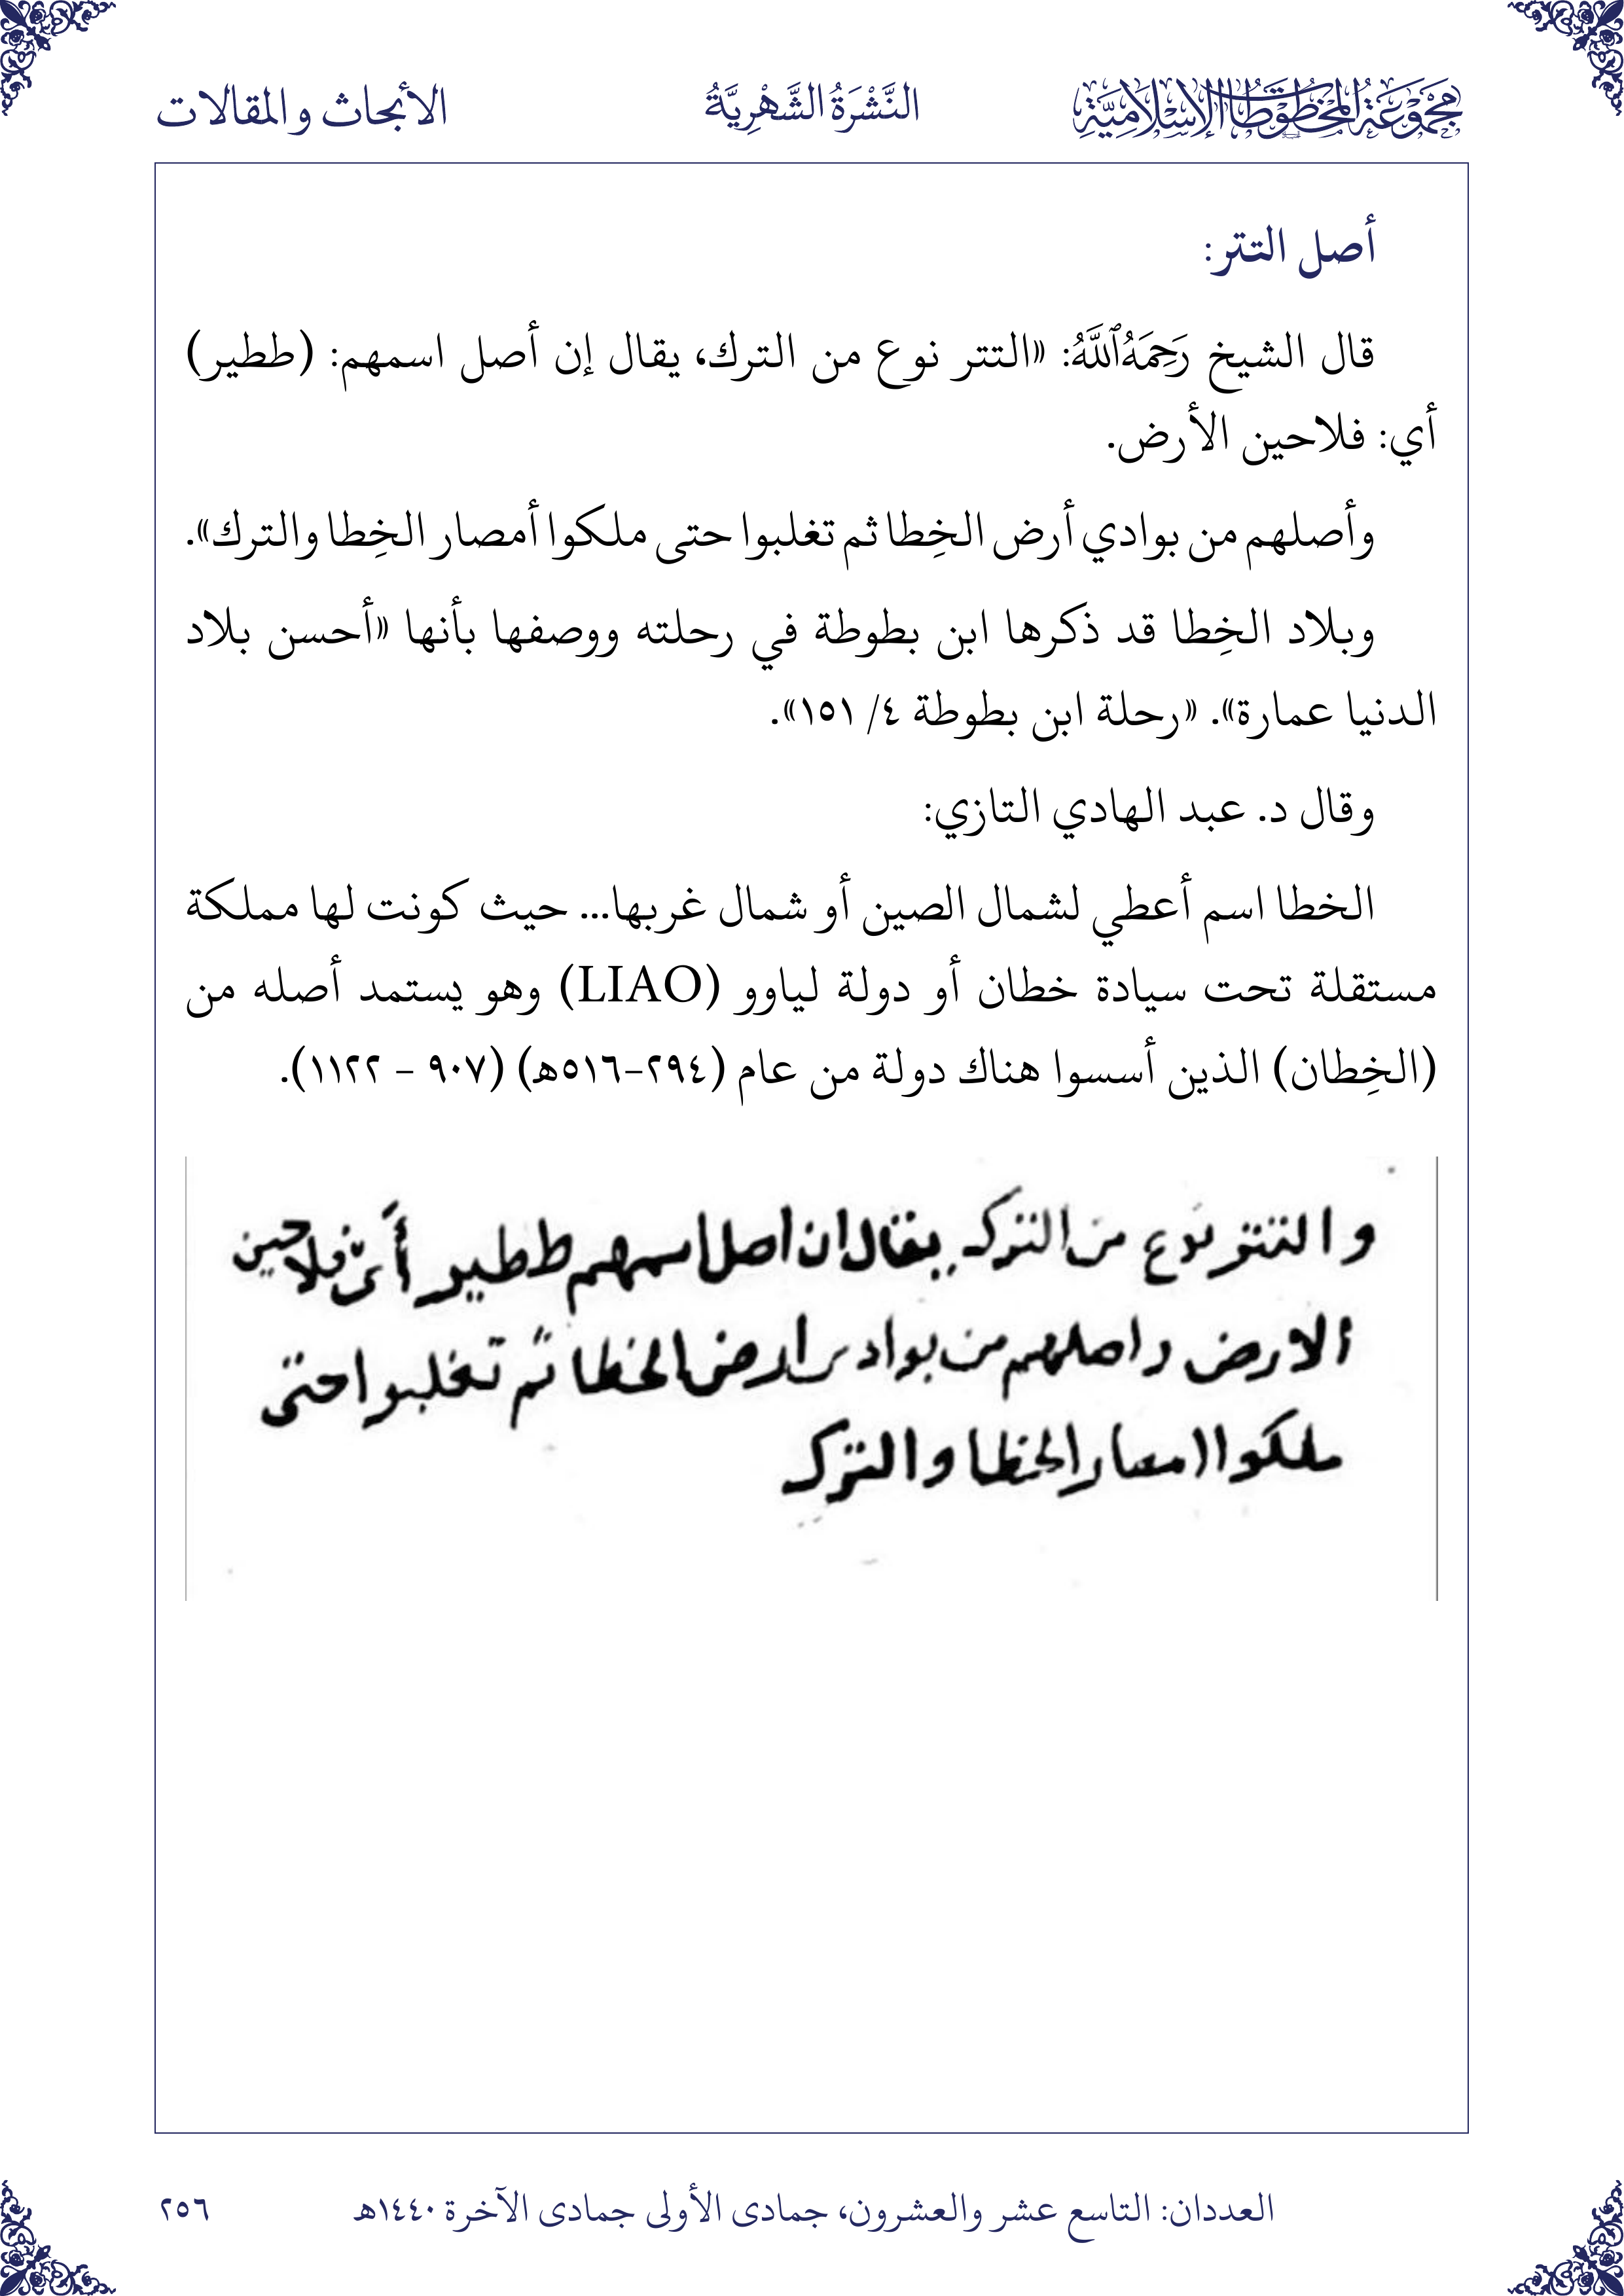 مَجْمُوعَةُ المَخْطُوطَاتِ الإِسْلَامِيَّةِ
النَّشْرَةُ الشَّهْرِيَّةُ
الأبحاث والمقالات
أصل التتر:
قال الشيخ رَحِمَهُ ٱللَّهُ: «التتر نوع من الترك، يقال إن أصل اسمهم: (ططير)
أي: فلاحين الأرض.
وأصلهم من بوادي أرض الخِطا ثم تغلبوا حتى ملكوا أمصار الخِطا والترك».
وبلاد الخِطا قد ذكرها ابن بطوطة في رحلته ووصفها بأنها «أحسن بلاد
الدنيا عمارة». «رحلة ابن بطوطة ٤/ ١٥١».
وقال د. عبد الهادي التازي:
الخطا اسم أعطي لشمال الصين أو شمال غربها... حيث كونت لها مملكة
مستقلة تحت سيادة خطان أو دولة لياوو (LIAO) وهو يستمد أصله من
(الخِطان) الذين أسسوا هناك دولة من عام (٢٩٤-٥١٦هـ) (٩٠٧ - ١١٢٢).
والتتر نوع من الترك يقال ان اصل اسمهم ططير أى فلاحين
الارض واصلهم من بوادى ارض الخطا ثم تغلبوا حتى
ملكوا امصار الخطا والترك
العددان: التاسع عشر والعشرون، جمادى الأولى جمادى الآخرة ١٤٤٠هـ
٢٥٦